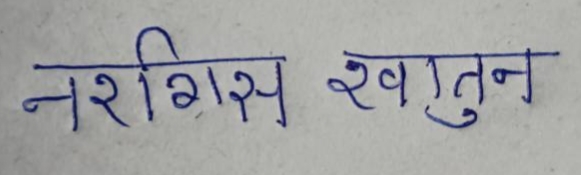 नरगिस खातुन